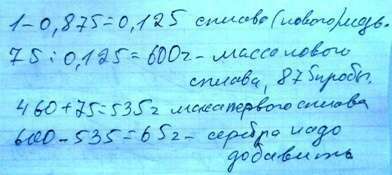 1-0,875=0,125 сплава (нового) медь.
75 : 0,125 = 600г - масса нового
сплава, 875 пробы.
460+75=535г масса первого сплава
600-535=65г - серебра надо
добавить